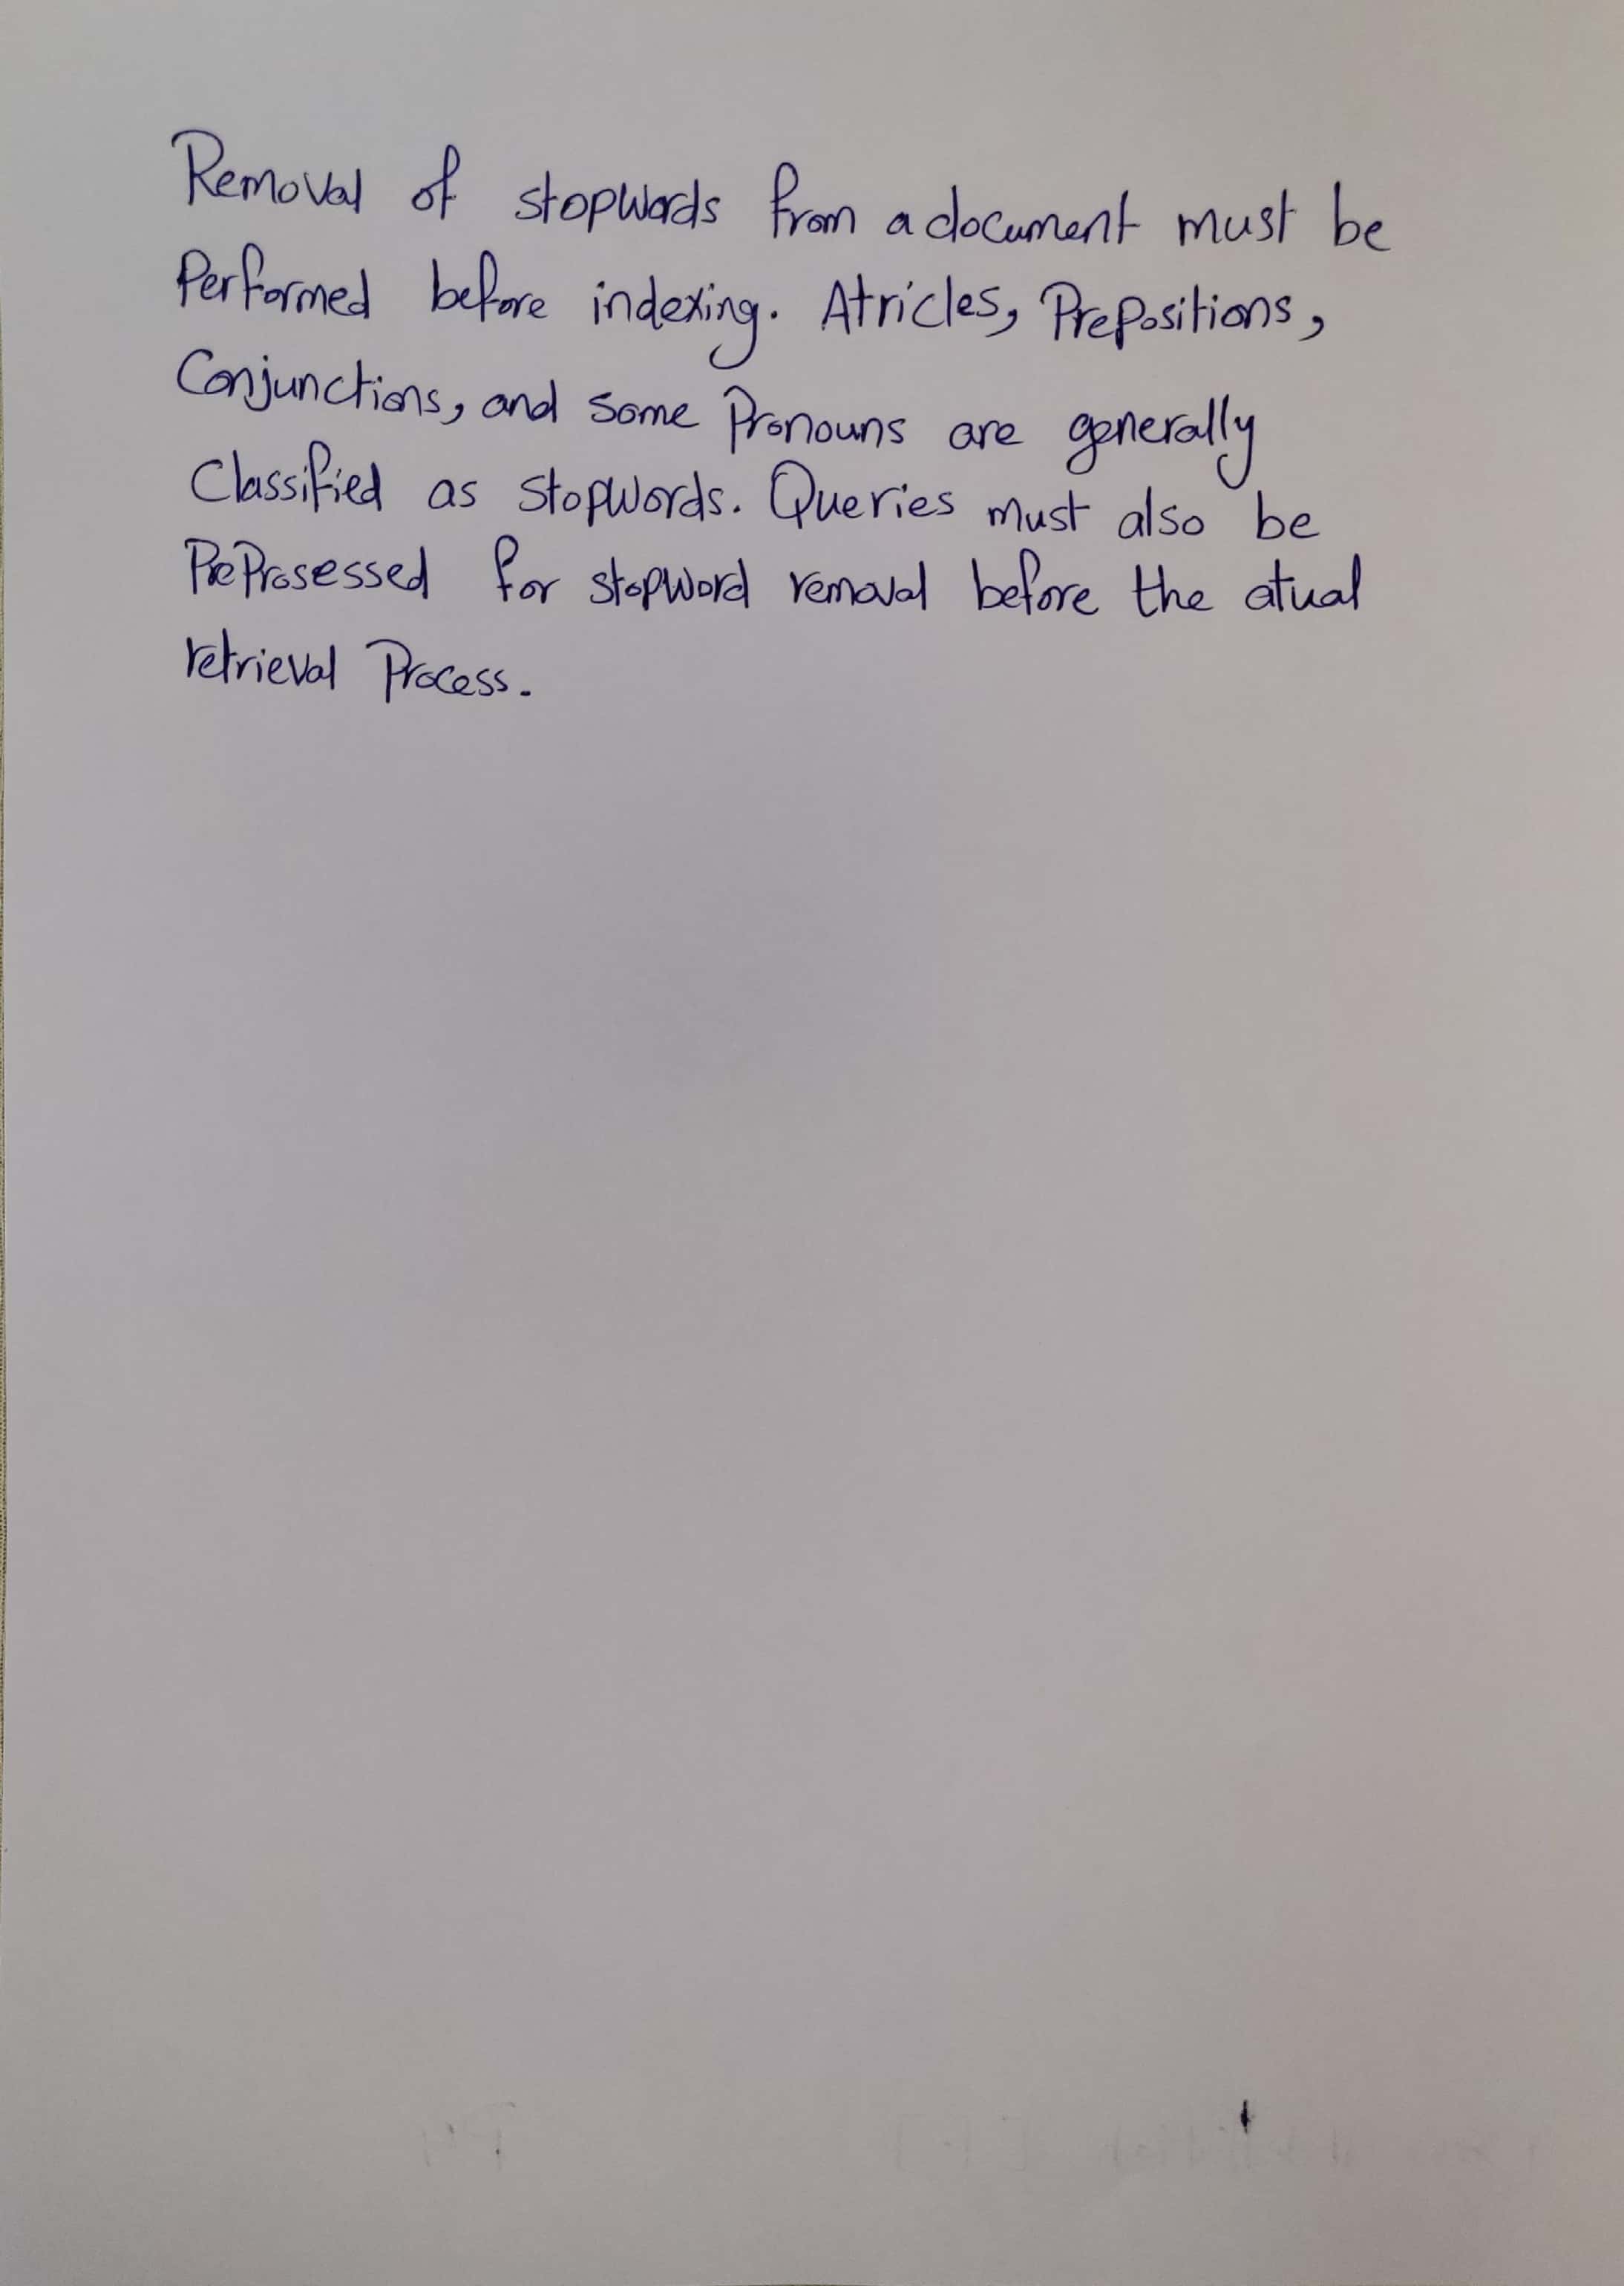 Removal of stopwords from a document must be
Performed before indexing. Atricles, Prepositions,
Conjunctions, and some Pronouns are generally
Classified as stopwords. Queries must also be
PreProsessed for stopword removal before the atual
retrieval Process.